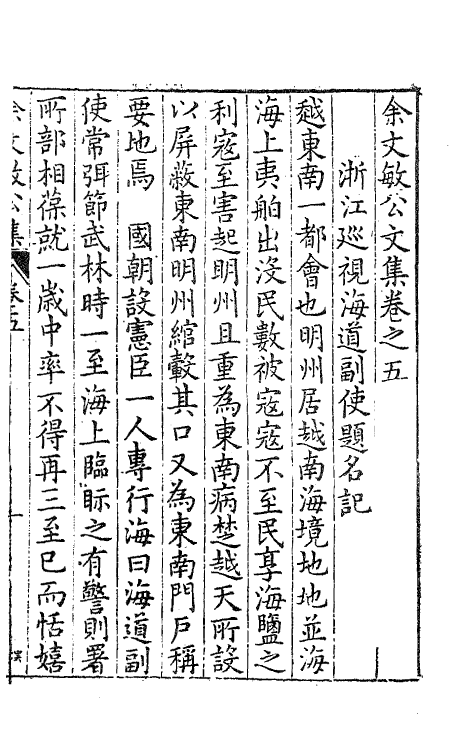 余文敏公文集卷之五
浙江巡視海道副使題名記
越東南一都會也明州居越南海境地地並海
海上夷舶出沒民數被寇寇不至民享海鹽之
利寇至害起明州且重為東南病楚越天所設
以屏蔽東南明州綰轂其口又為東南門戶稱
要地焉　國朝設憲臣一人專行海曰海道副
使常弭節武林時一至海上臨眎之有警則署
所部相葆就一歲中率不得再三至已而恬嬉
余文敏公集 卷五 一